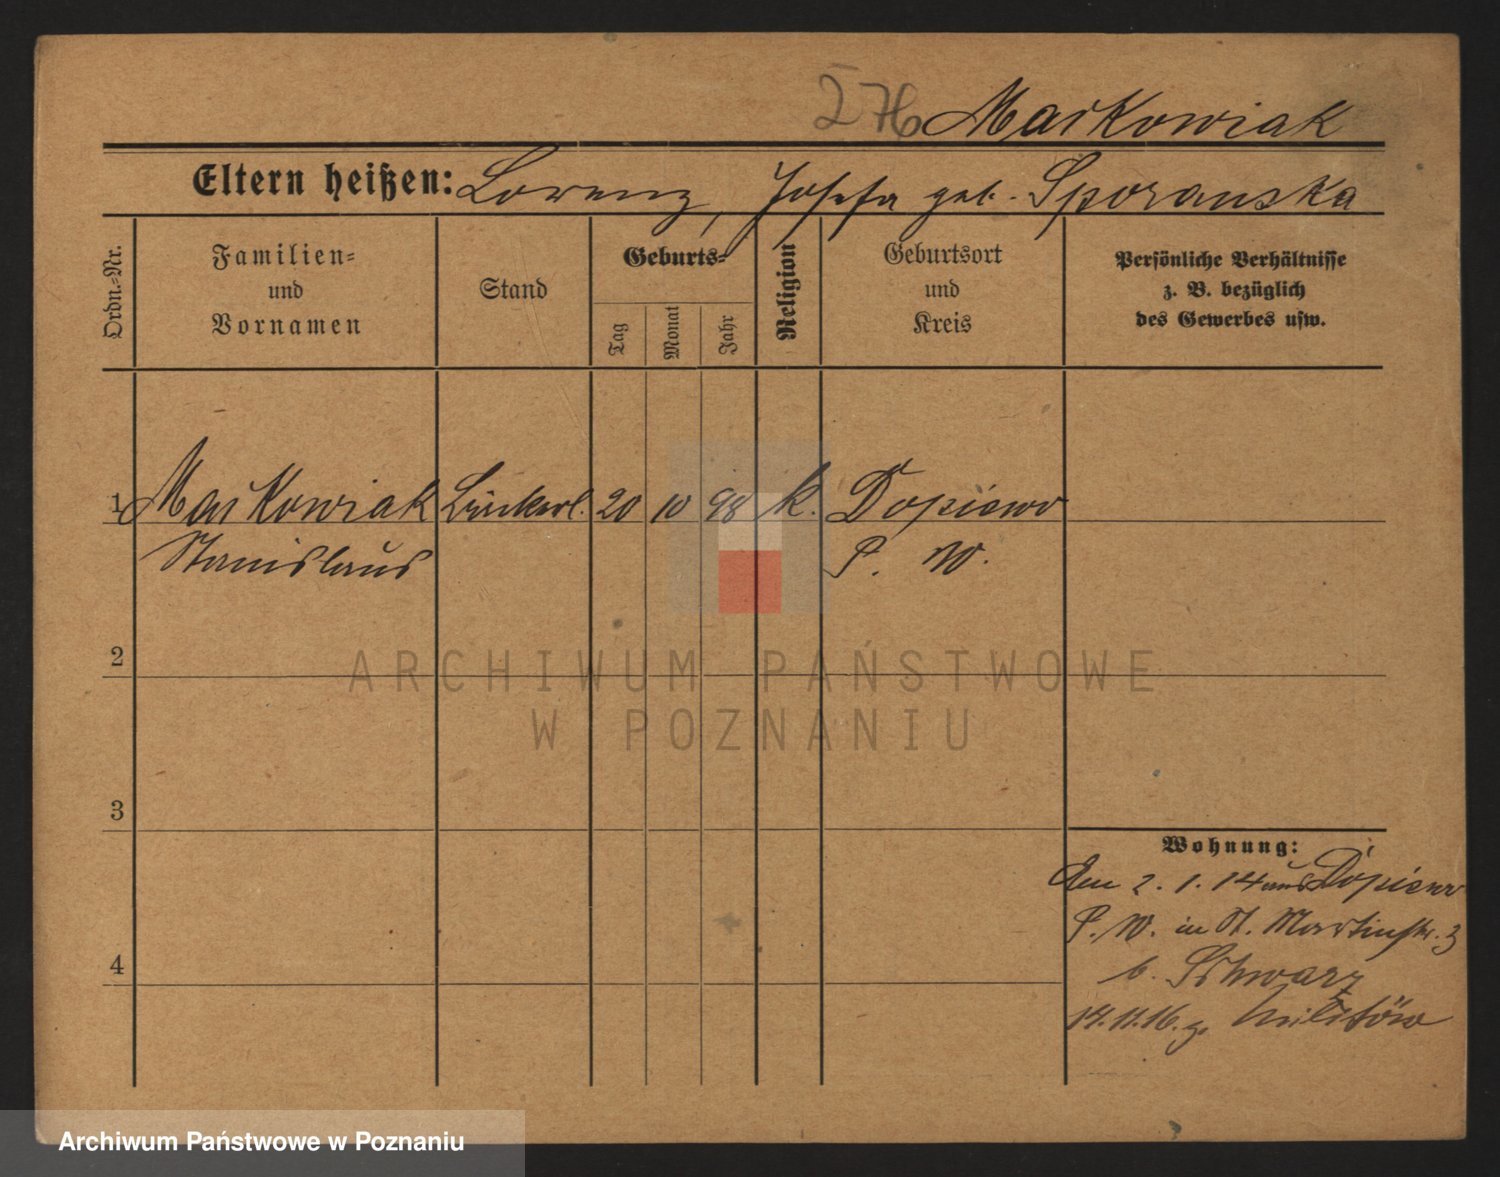 276 Markowiak
Eltern heißen: Lorenz, Josefa geb. Sporanska
Ordn.=Nr.
Familien=
und
Vornamen
Stand
Geburts=
Tag
Monat
Jahr
Religion
Geburtsort
und
Kreis
Persönliche Verhältnisse
z. B. bezüglich
des Gewerbes usw.
1 Markowiak Bäckerl. 20 10 98 k. Dopiewo
Stanislaus P. W.
2
3
4
Wohnung:
Am 2. 1. 14 aus Dopiewo
P. W. in St. Martinstr. 3
b. Schwarz
14.11.16. z. Militär
ARCHIWUM PAŃSTWOWE
W POZNANIU
Archiwum Państwowe w Poznaniu